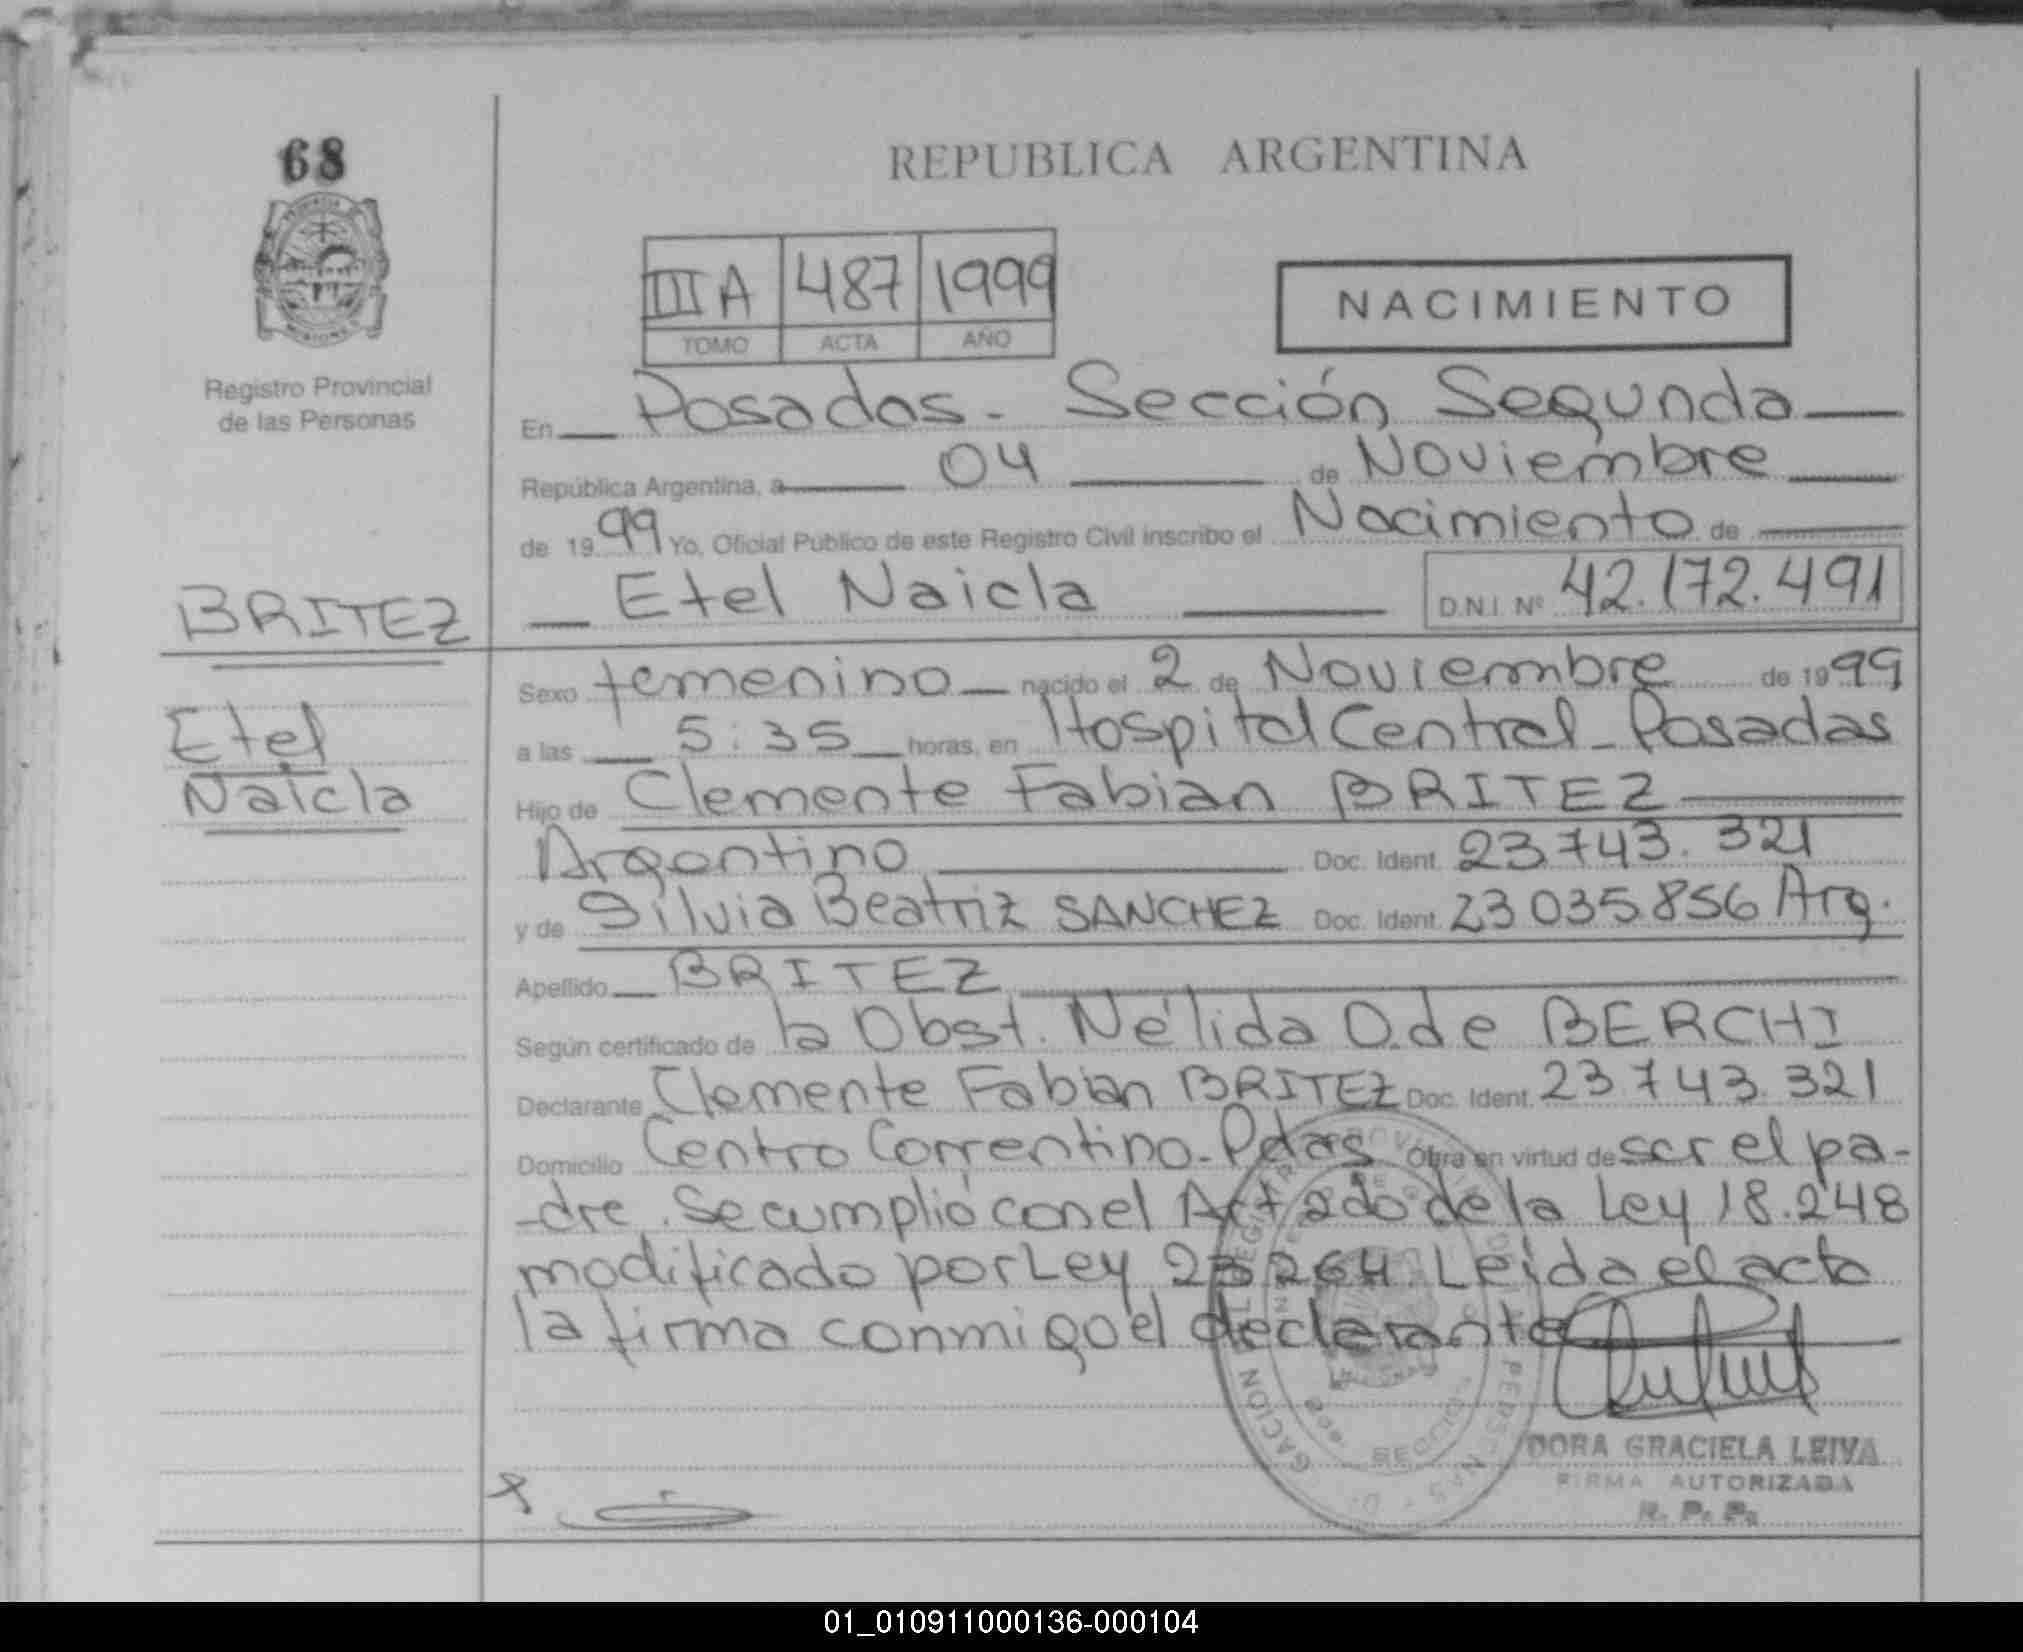 68
REPUBLICA ARGENTINA
III A 487 1999
TOMO ACTA AÑO
NACIMIENTO
Registro Provincial
de las Personas
En Posadas - Sección Segunda
República Argentina, a 04 de Noviembre
de 1999 Yo, Oficial Público de este Registro Civil inscribo el Nacimiento de
Etel Naicla D.N.I. Nº 42.172.491
BRITEZ
Etel
Naicla
Sexo femenino nacido el 2 de Noviembre de 1999
a las 5:35 horas, en Hospital Central - Posadas
Hijo de Clemente Fabian BRITEZ
Argentino Doc. Ident. 23.743.321
y de Silvia Beatriz SANCHEZ Doc. Ident. 23 035.856 Arg.
Apellido BRITEZ
Según certificado de la Obst. Nélida O. de BERCHI
Declarante Clemente Fabian BRITEZ Doc. Ident. 23 743.321
Domicilio Centro Correntino - Pdas Obra en virtud de ser el pa-
-dre. Se cumplió con el Art 2do de la Ley 18.248
modificado por Ley 23264. Leída el acta
la firma conmigo el declarante
DORA GRACIELA LEIVA
FIRMA AUTORIZADA
R. P. P.
01_010911000136-000104